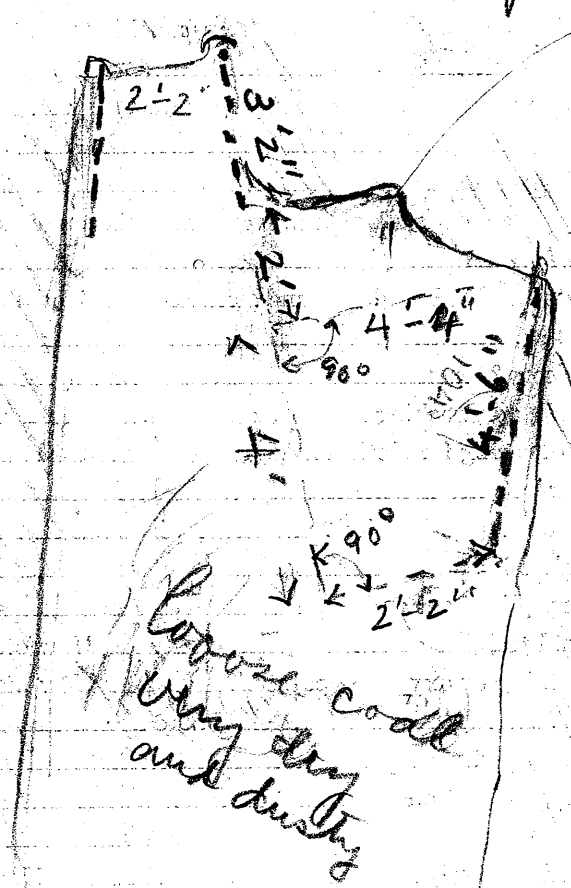 2'-2"
3'2"
2'
4'-4"
90°
4'
90°
2'-2"
Loose coal
very dry
and dusty